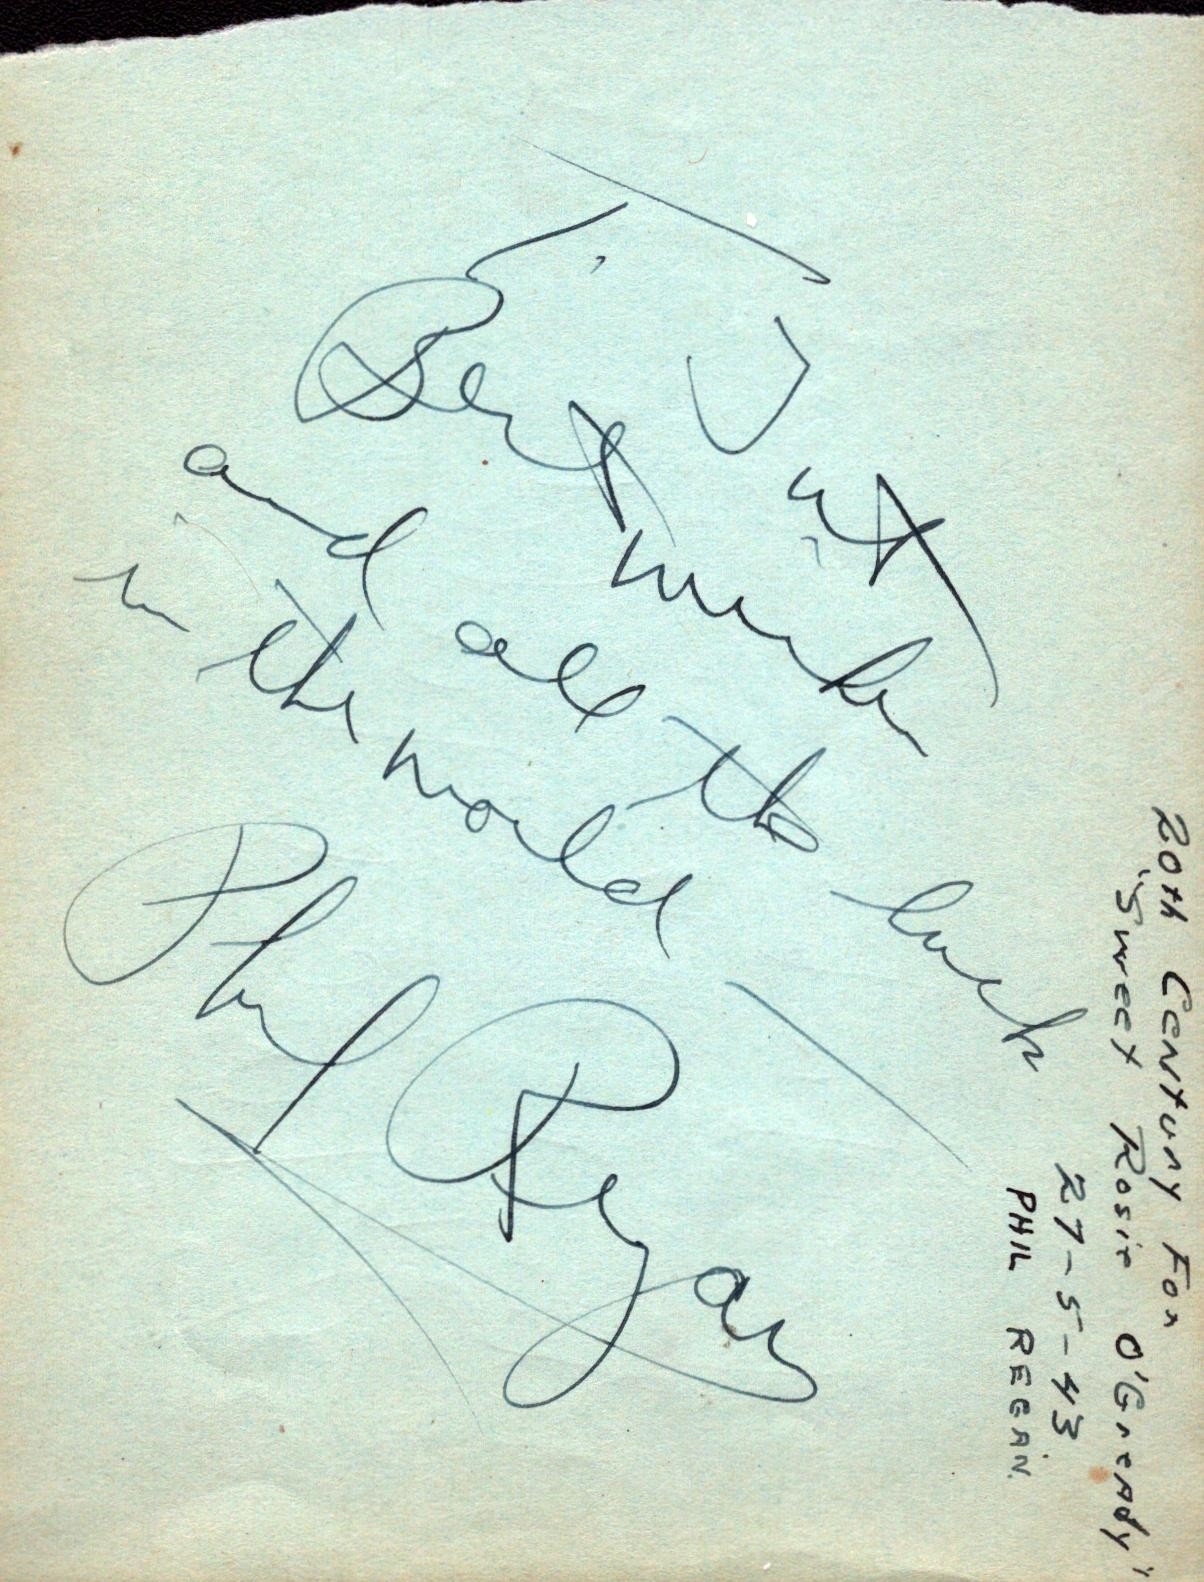 To Vist
Best wishes
and all the luck
in the world
Phil Regan
20th Century Fox
"Sweet Rosie O'Gready"
27-5-43
PHIL REGAN